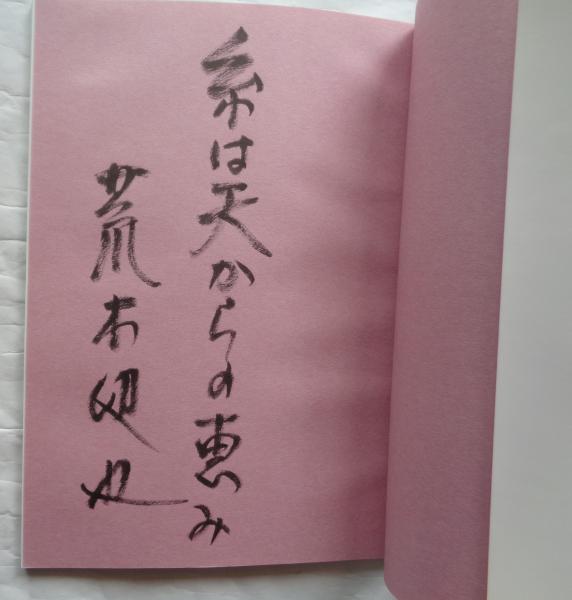 糸は天からの恵み
荒木